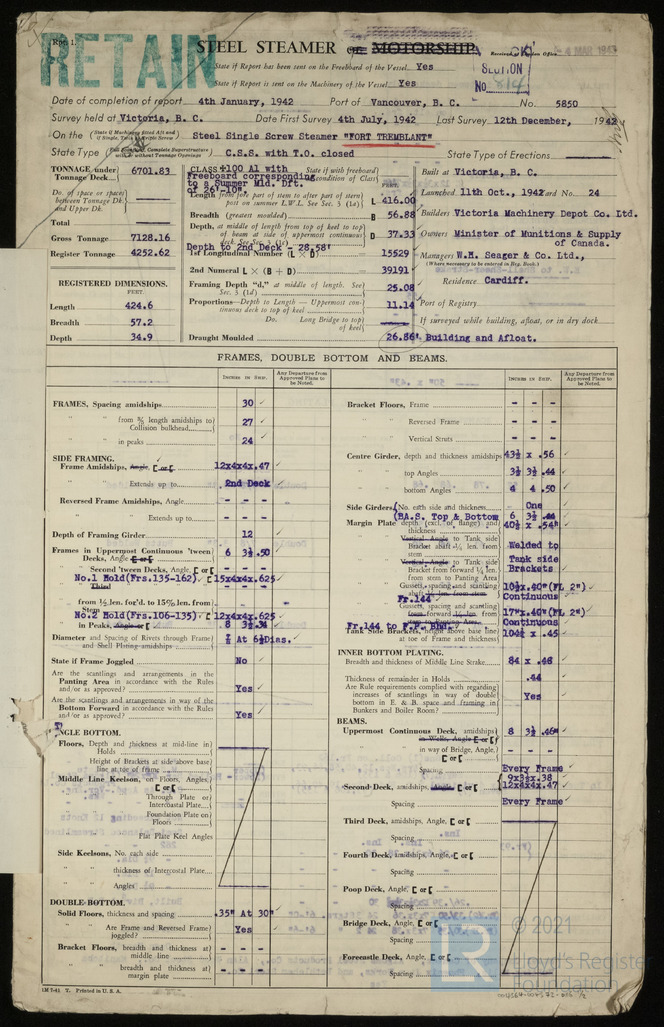 Rpt 1.
RETAIN
STEEL STEAMER or MOTORSHIP
SECTION
4 MAR
State if Report has been sent on the Freeboard of the Vessel Yes
State if Report is sent on the Machinery of the Vessel Yes
No.
Date of completion of report 4th January, 1942 Port of Vancouver, B. C. No. 5850
Survey held at Victoria, B. C. Date First Survey 4th July, 1942 Last Survey 12th December, 1942
On the Steel Single Screw Steamer "FORT TREMBLANT"
State Type C.S.S. with T.O. closed State Type of Erections
TONNAGE under Tonnage Deck 6701.83
No. of space or spaces between Tonnage Dk. and Upper Dk.
Total
Gross Tonnage 7128.16
Register Tonnage 4252.62
REGISTERED DIMENSIONS.
FEET.
Length 424.6
Breadth 57.2
Depth 34.9
CLASS +100 A1 with State if with freeboard
Freeboard corresponding condition of Class
to a Summer Mld. Dft.
of 26'-10"
FEET.
Length from fore part of stem to after part of stern post on summer L.W.L. See Sec. 3 (1a) L 416.00
Breadth (greatest moulded) B 56.88
Depth, at middle of length from top of keel to top of beam at side of uppermost continuous deck. D 37.33
Depth to 2nd Deck - 28.58'
1st Longitudinal Number (L x D) 15529
2nd Numeral L x (B + D) 39191
Framing Depth "d," at middle of length. See Sec. 3 (1d) 25.08
Proportions—Depth to Length—Uppermost continuous deck to top of keel 11.14
Do. Long Bridge to top of keel
Draught Moulded 26.86'
Built at Victoria, B. C.
Launched 11th Oct., 1942 Yard No. 24
Builders Victoria Machinery Depot Co. Ltd.
Owners Minister of Munitions & Supply
of Canada.
Managers W.H. Seager & Co. Ltd.,
(Where necessary to be entered in Reg. Book.)
Residence Cardiff.
Port of Registry
If surveyed while building, afloat, or in dry dock
Building and Afloat.
FRAMES, DOUBLE BOTTOM AND BEAMS.
INCHES IN SHIP. Any Departure from Approved Plans to be Noted.
INCHES IN SHIP. Any Departure from Approved Plans to be Noted.
FRAMES, Spacing amidships 30
" " from ⅗ length amidships to Collision bulkhead 27
" " in peaks 24
SIDE FRAMING.
Frame Amidships, Angle, [ or [ 12x4x4x.47
" " Extends up to 2nd Deck
Reversed Frame Amidships, Angle - - -
" " " Extends up to - - -
Depth of Framing Girder 12
Frames in Uppermost Continuous 'tween Decks, Angle [ or [ 6 3½ .50
" Second 'tween Decks, Angle, [ or [ - - -
No.1 Hold(Frs.135-162) [ 15x4x4x.625
" from ½ len. for'd. to 15% len. from Stem
No.2 Hold(Frs.106-135) [ 12x4x4x.625
" in Peaks, Angle or [ 8 3½ .34
Diameter and Spacing of Rivets through Frame and Shell Plating amidships ⅞ At 6½Dias.
State if Frame Joggled No
Are the scantlings and arrangements in the Panting Area in accordance with the Rules and/or as approved? Yes
Are the scantlings and arrangements in way of the Bottom Forward in accordance with the Rules and/or as approved? Yes
NGLE BOTTOM.
Floors, Depth and thickness at mid-line in Holds
" Height of Brackets at side above base line at toe of frame
Middle Line Keelson, on Floors, Angles, [ or [
" " Through Plate or Intercostal Plate
" " Foundation Plate on Floors
" " Flat Plate Keel Angles
Side Keelsons, No. each side
" " thickness of Intercostal Plate
" " Angles
DOUBLE-BOTTOM.
Solid Floors, thickness and spacing .35" At 30"
" " Are Frame and Reversed Frame joggled? Yes
Bracket Floors, breadth and thickness at middle line - - -
" " breadth and thickness at margin plate - - -
Bracket Floors, Frame - - -
" " Reversed Frame - - -
" " Vertical Struts - - -
Centre Girder, depth and thickness amidships 43½ x .56
" " top Angles 3½ 3½ .44
" " bottom Angles 4 4 .50
Side Girders, No. each side and thickness One
(BA.S. Top & Bottom 6 3½ .44
Margin Plate depth (excl. of flange) and thickness 40½ x .54"
" " Vertical Angle to Tank side Bracket abaft ¼ len. from stem Welded to
" " Vertical Angle to Tank side Bracket from forward ¼ len. from stem to Panting Area Tank side Brackets
" " Gussets, spacing and scantling abaft ¼ len. from stem 10½x.40"(FL 2")
Fr.144 Continuous
" " Gussets, spacing and scantling from forward ¼ len. from stem to Panting Area 17"x.40"(FL 2")
Fr.144 to F.P. Bhd. Continuous
Tank Side Brackets, height above base line at toe of Frame and thickness 104½ x .45
INNER BOTTOM PLATING.
Breadth and thickness of Middle Line Strake 84 x .46
Thickness of remainder in Holds .44
Are Rule requirements complied with regarding increases of scantlings in way of double bottom in E. & B. space and framing in Bunkers and Boiler Room? Yes
BEAMS.
Uppermost Continuous Deck, amidships in Wells, Angle [ or [ 8 3½ .46"
" " in way of Bridge, Angle, [ or [ - - -
" " Spacing Every Frame
9x3½x.38
Second Deck, amidships, Angle, [ or [ 12x4x4x.47
" " Spacing Every Frame
Third Deck, amidships, Angle, [ or [
" " Spacing
Fourth Deck, amidships, Angle, [ or [
" " Spacing
Poop Deck, Angle, [ or [
" " Spacing
Bridge Deck, Angle, [ or [
" " Spacing
Forecastle Deck, Angle, [ or [
" " Spacing
1M 7-41 T. Printed in U. S. A.
LR
© 2021
Lloyd's Register
Foundation